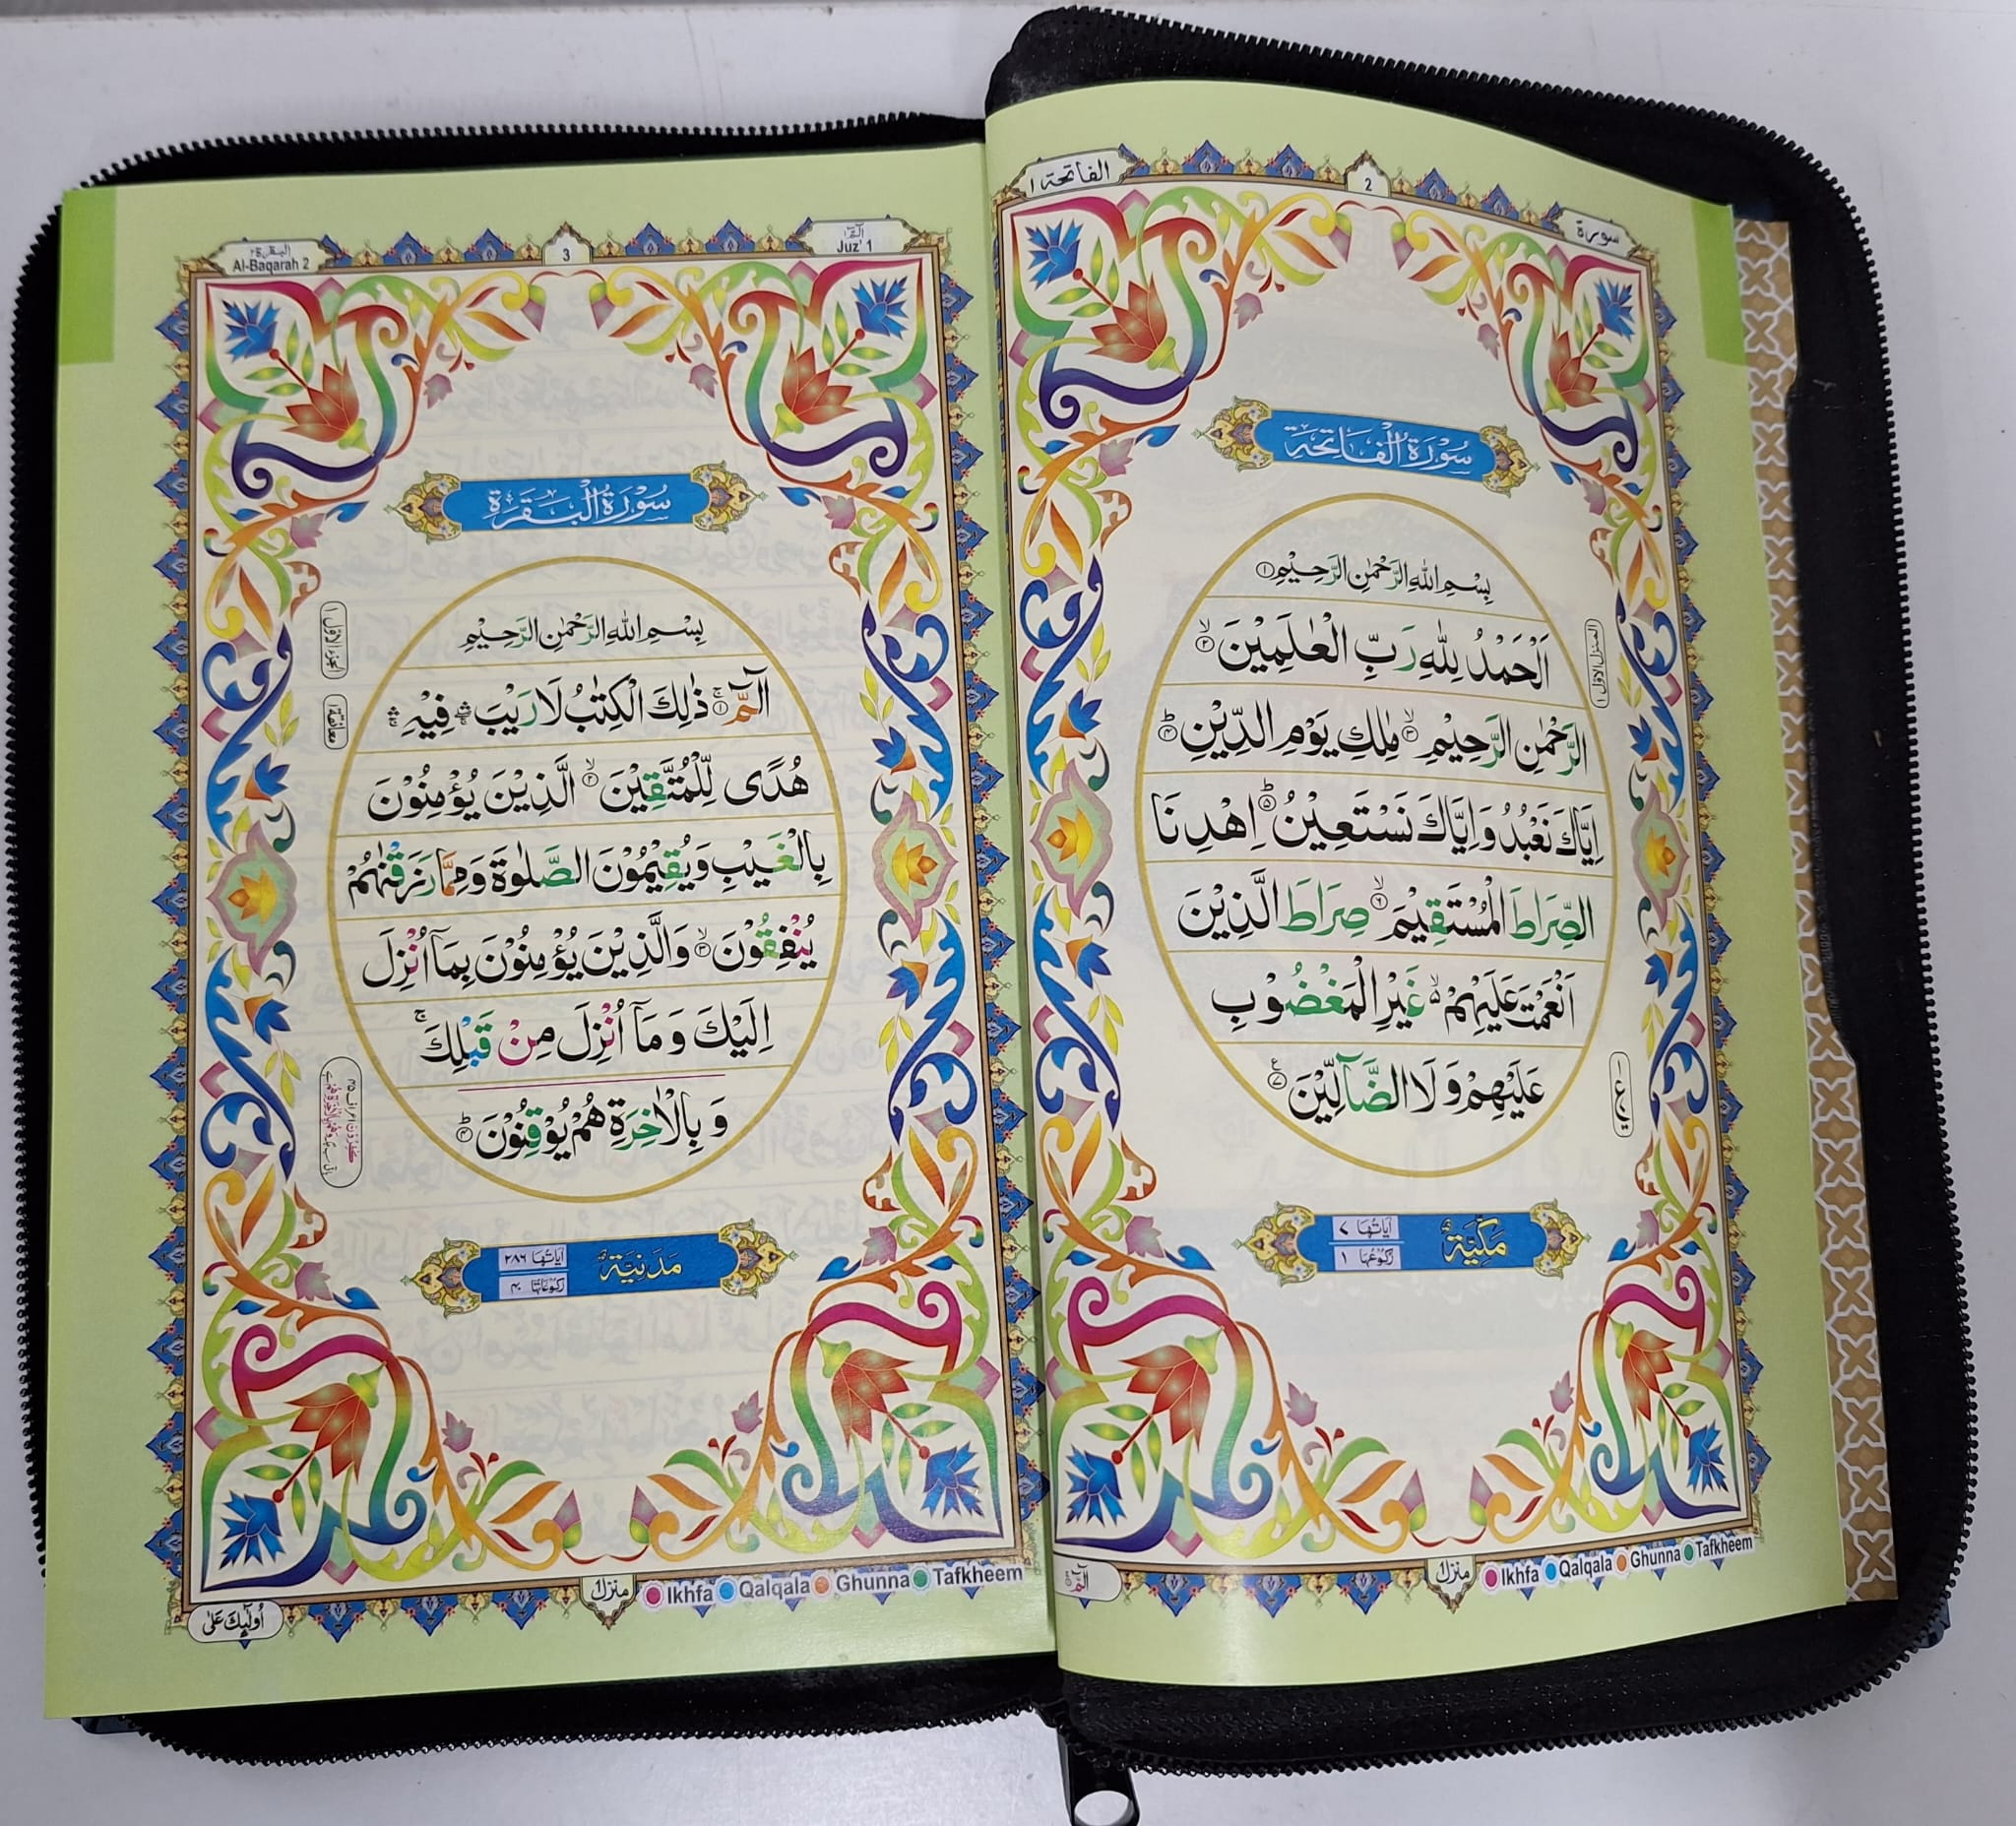 الفاتحة ١
2
سورة
سُوْرَةُ الْفَاتِحَة
بِسْمِ اللهِ الرَّحْمٰنِ الرَّحِيْمِ ۝١
اَلْحَمْدُ لِلّٰهِ رَبِّ الْعٰلَمِيْنَ ۙ۝٢
الرَّحْمٰنِ الرَّحِيْمِ ۙ۝٣ مٰلِكِ يَوْمِ الدِّيْنِ ؕ۝٤
اِيَّاكَ نَعْبُدُ وَاِيَّاكَ نَسْتَعِيْنُ ؕ۝٥ اِهْدِنَا
الصِّرَاطَ الْمُسْتَقِيْمَ ۙ۝٦ صِرَاطَ الَّذِيْنَ
اَنْعَمْتَ عَلَيْهِمْ ۙ۬ غَيْرِ الْمَغْضُوْبِ
عَلَيْهِمْ وَلَا الضَّآلِّيْنَ ۝٧
المنزل الاوّل ١
مَكِّيَّةٌ
اٰيَاتُهَا ٧
رُكُوْعُهَا ١
الٓمّٓ
منزل ١
Ikhfa Qalqala Ghunna Tafkheem
البقرة ٢
Al-Baqarah 2
3
الٓمّٓ ١
Juz' 1
سُوْرَةُ الْبَقَرَة
بِسْمِ اللهِ الرَّحْمٰنِ الرَّحِيْمِ
الٓمّٓ ۚ۝١ ذٰلِكَ الْكِتٰبُ لَا رَيْبَ ۛۚ فِيْهِ ۛۚ
هُدًى لِّلْمُتَّقِيْنَ ۙ۝٢ الَّذِيْنَ يُؤْمِنُوْنَ
بِالْغَيْبِ وَيُقِيْمُوْنَ الصَّلٰوةَ وَمِمَّا رَزَقْنٰهُمْ
يُنْفِقُوْنَ ۙ۝٣ وَالَّذِيْنَ يُؤْمِنُوْنَ بِمَآ اُنْزِلَ
اِلَيْكَ وَمَآ اُنْزِلَ مِنْ قَبْلِكَ ۚ
وَبِالْاٰخِرَةِ هُمْ يُوْقِنُوْنَ ؕ۝٤
الجزء الاوّل ١
معانقة ١
مَدَنِيَّةٌ
اٰيَاتُهَا ٢٨٦
رُكُوْعَاتُهَا ٤٠
اُولٰٓئِكَ عَلٰى
منزل ١
Ikhfa Qalqala Ghunna Tafkheem